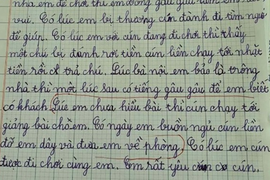 nhà để chơi thì em đóng gâu gâu
vui. Có lúc em bị thương cún dành đi tìm ngồi
để giúp. Có lúc em với cún đang đi chơi thì thấy
một chú bị đánh rơi tiền cún liền chạy tới nhặt
tiền rồi để trả chú. Lúc bà nội em bảo là trông
nhà thì một lúc sau có tiếng gâu gâu để em biết
có khách. Lúc em chưa hiểu bài thì cún chạy tới
giảng bài cho em. Có ngày em buồn ngủ cún liền
đỡ em dậy và đưa em về phòng. Có lúc em cún
được đi chơi cùng em. Em rất yêu cún